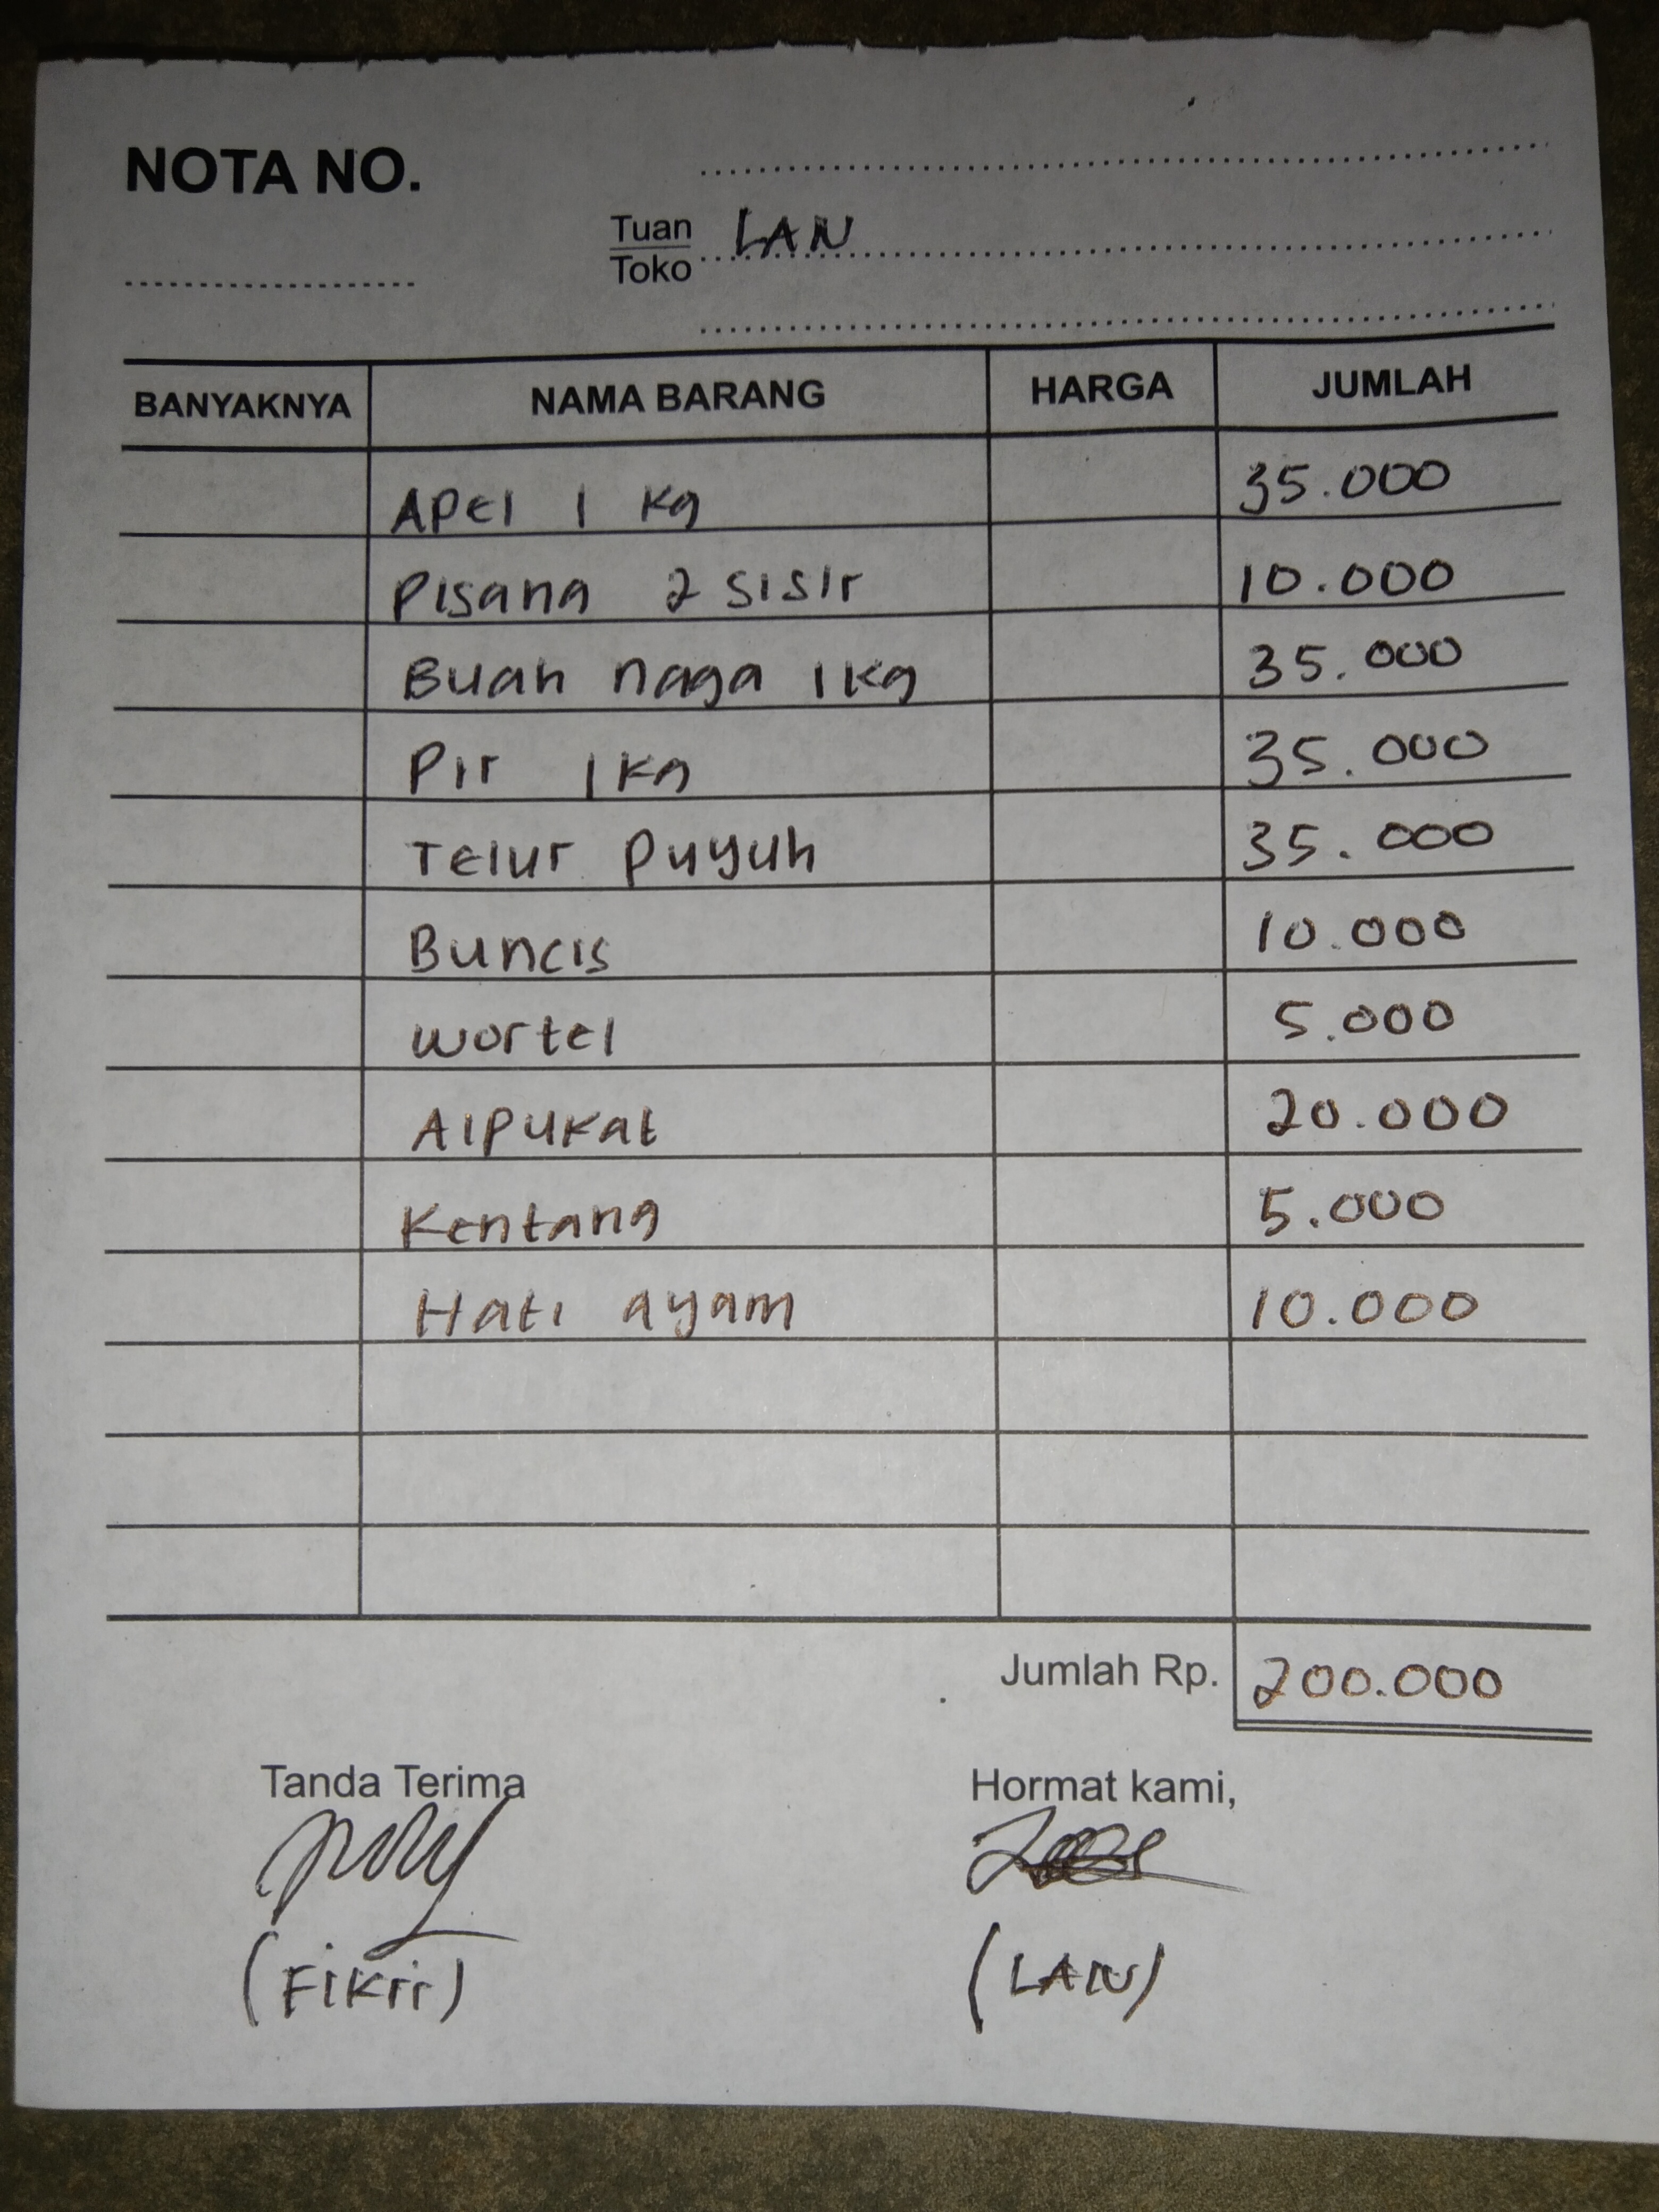 NOTA NO.
Tuan
Toko
LAN
BANYAKNYA NAMA BARANG HARGA JUMLAH
Apel 1 kg 35.000
Pisang 2 sisir 10.000
Buah naga 1 kg 35.000
Pir 1 kg 35.000
Telur puyuh 35.000
Buncis 10.000
wortel 5.000
Alpukat 20.000
Kentang 5.000
Hati ayam 10.000
Jumlah Rp. 200.000
Tanda Terima Hormat kami,
(Fikri) (LAN)